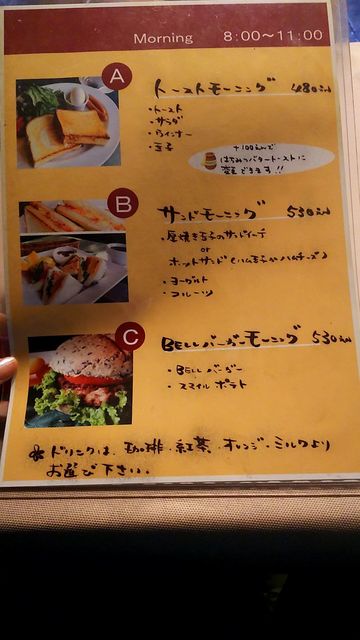 Morning 8:00〜11:00
A
トーストモーニング 480えん
・トースト
・サラダ
・ウインナー
・玉子
+100えんで
はちみつバタートーストに
変更できます!!
B
サンドモーニング 530えん
・厚焼き玉子のサンドイッチ
or
ホットサンド(ハム玉子かハムチーズ)
・ヨーグルト
・フルーツ
C
BELLバーガーモーニング 530えん
・BELLバーガー
・スマイルポテト
※ドリンクは、珈琲・紅茶・オレンジ・ミルクより
お選び下さい。